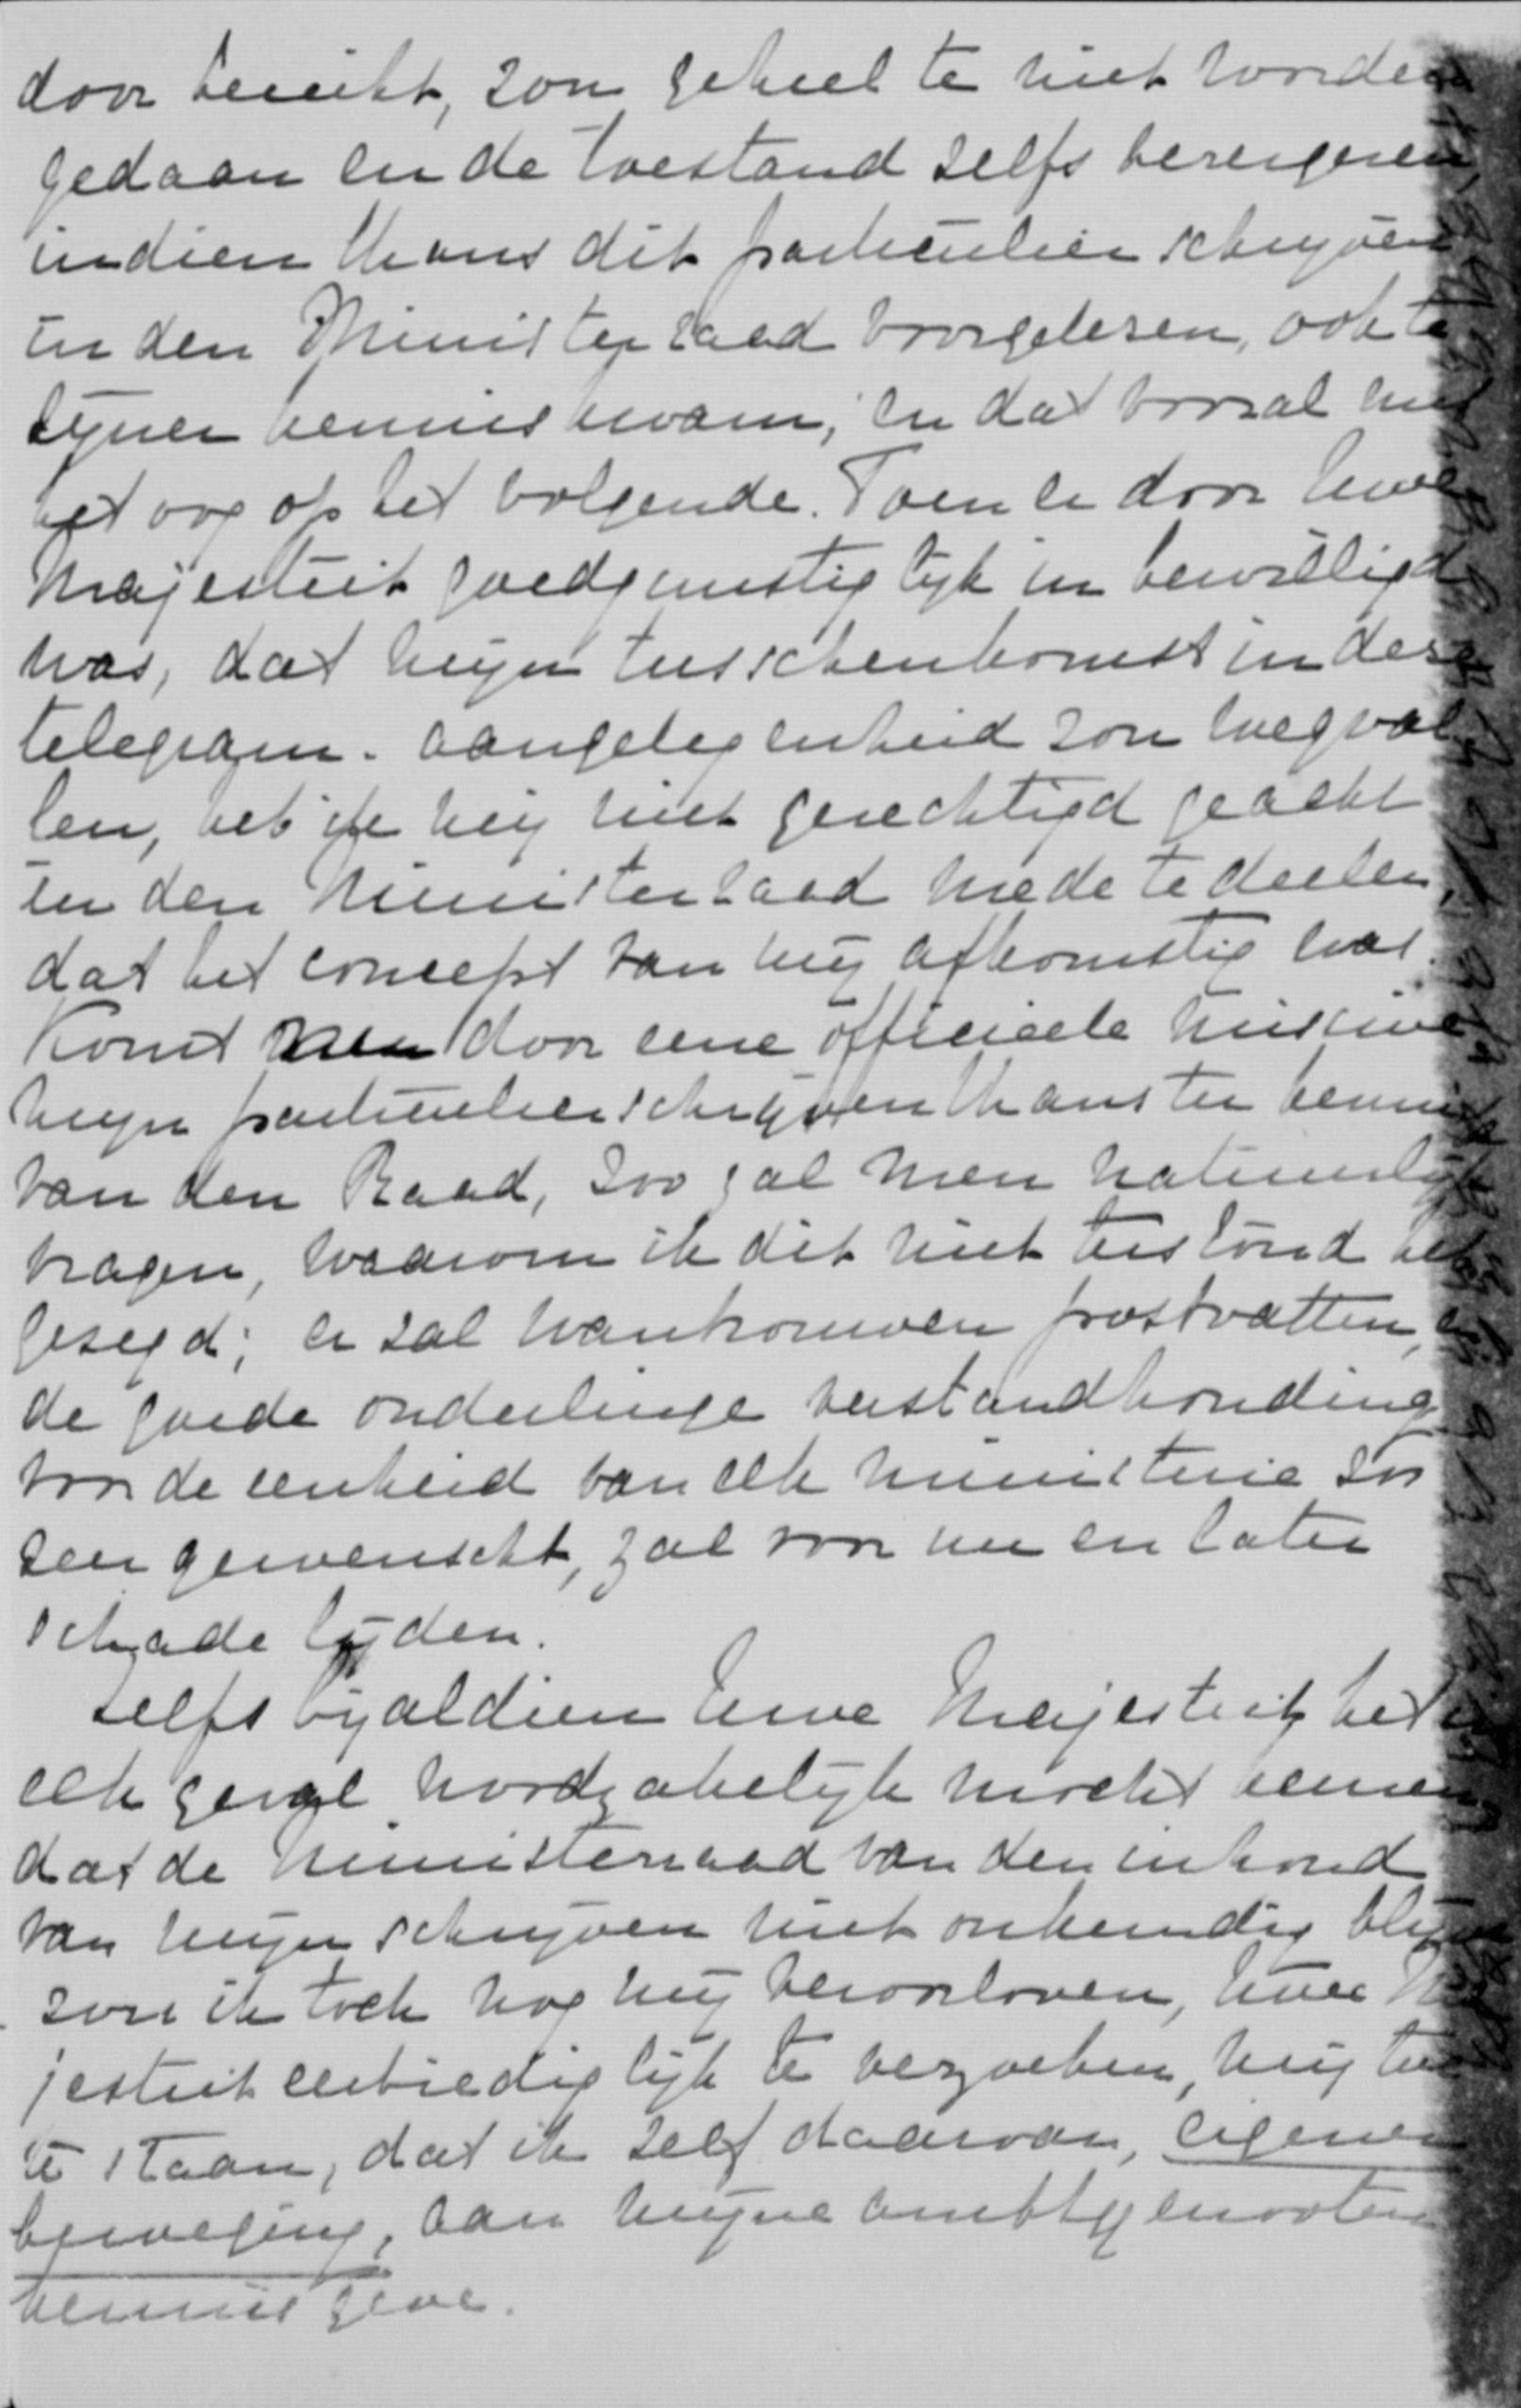 door bereikt, zou geheel te niet worden
gedaan en de toestand zelfs verergeren,
indien thans dit particulier schrijven
in den Ministerraad voorgelezen, ook te
zijner kennis kwam; en dat vooral met
het oog op het volgende. Toen er door Uwe
Majesteit goedgunstiglijk in bewilligd
was, dat mijn tusschenkomst in deze
telegram-aangelegenheid zou wegval-
len, heb ik mij niet gerechtigd geacht
in den Ministerraad mede te deelen,
dat het concept van mij afkomstig was.
Komt men door eene officieele missive
mijn particulier schrijven thans ter kennis
van den Raad, zoo zal men natuurlijk
vragen, waarom ik dit niet terstond heb
gezegd; er zal wantrouwen postvatten, en
de goede onderlinge verstandhouding
voor de eenheid van elk ministerie zoo
zeer gewenscht, zal voor nu en later
schade lijden.
Zelfs bijaldien Uwe Majesteit het in
elk geval noodzakelijk mocht keuren
dat de Ministerraad van den inhoud
van mijn schrijven niet onkundig blijve
zou ik toch nog mij veroorloven, Uwe Ma
jesteit eerbiediglijk te verzoeken, mij toe
te staan, dat ik zelf daarvan, eigener
beweging, aan mijne ambtgenooten
kennis geve.